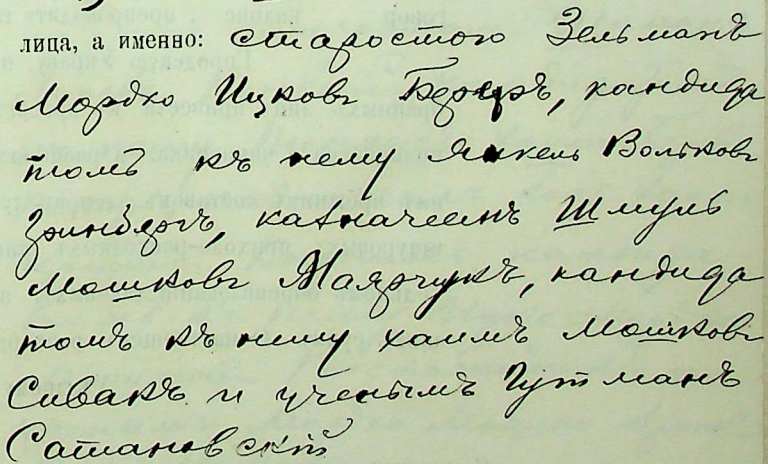 лица, а именно: старостою Зельманъ
Мордко Ицковъ Бергеръ, кандида
томъ къ нему Янкель Вольковъ
Гринбергъ, казначеемъ Шмуль
Мошковъ Маярчукъ, кандида
томъ къ нему Хаимъ Мошковъ
Сивакъ и ученымъ Гутманъ
Сатановскій